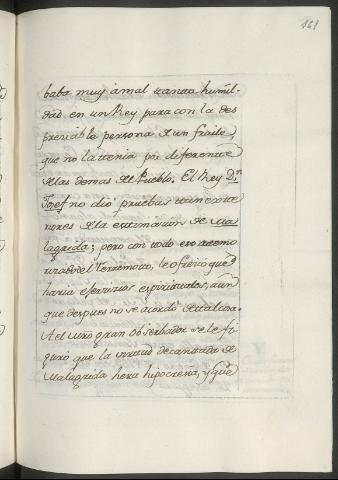 161
baba muy à mal tanta humil-
dad en un Rey para con la des
preciable persona de un fraile,
que no la tenia por diferente
de las demas del Pueblo. El Rey Dn.
Josef no dió pruebas tan exte
riores de la estimacion de Ma
lagrida; pero con todo eso atemo
rizado del Terremoto, le ofreció que
haria exercicios espirituales, aun
que despues no se acordó de tal cosa.
A el uno gran observador se le fi
guró que la virtud decantada de
Malagrida hera hipocresia, y que